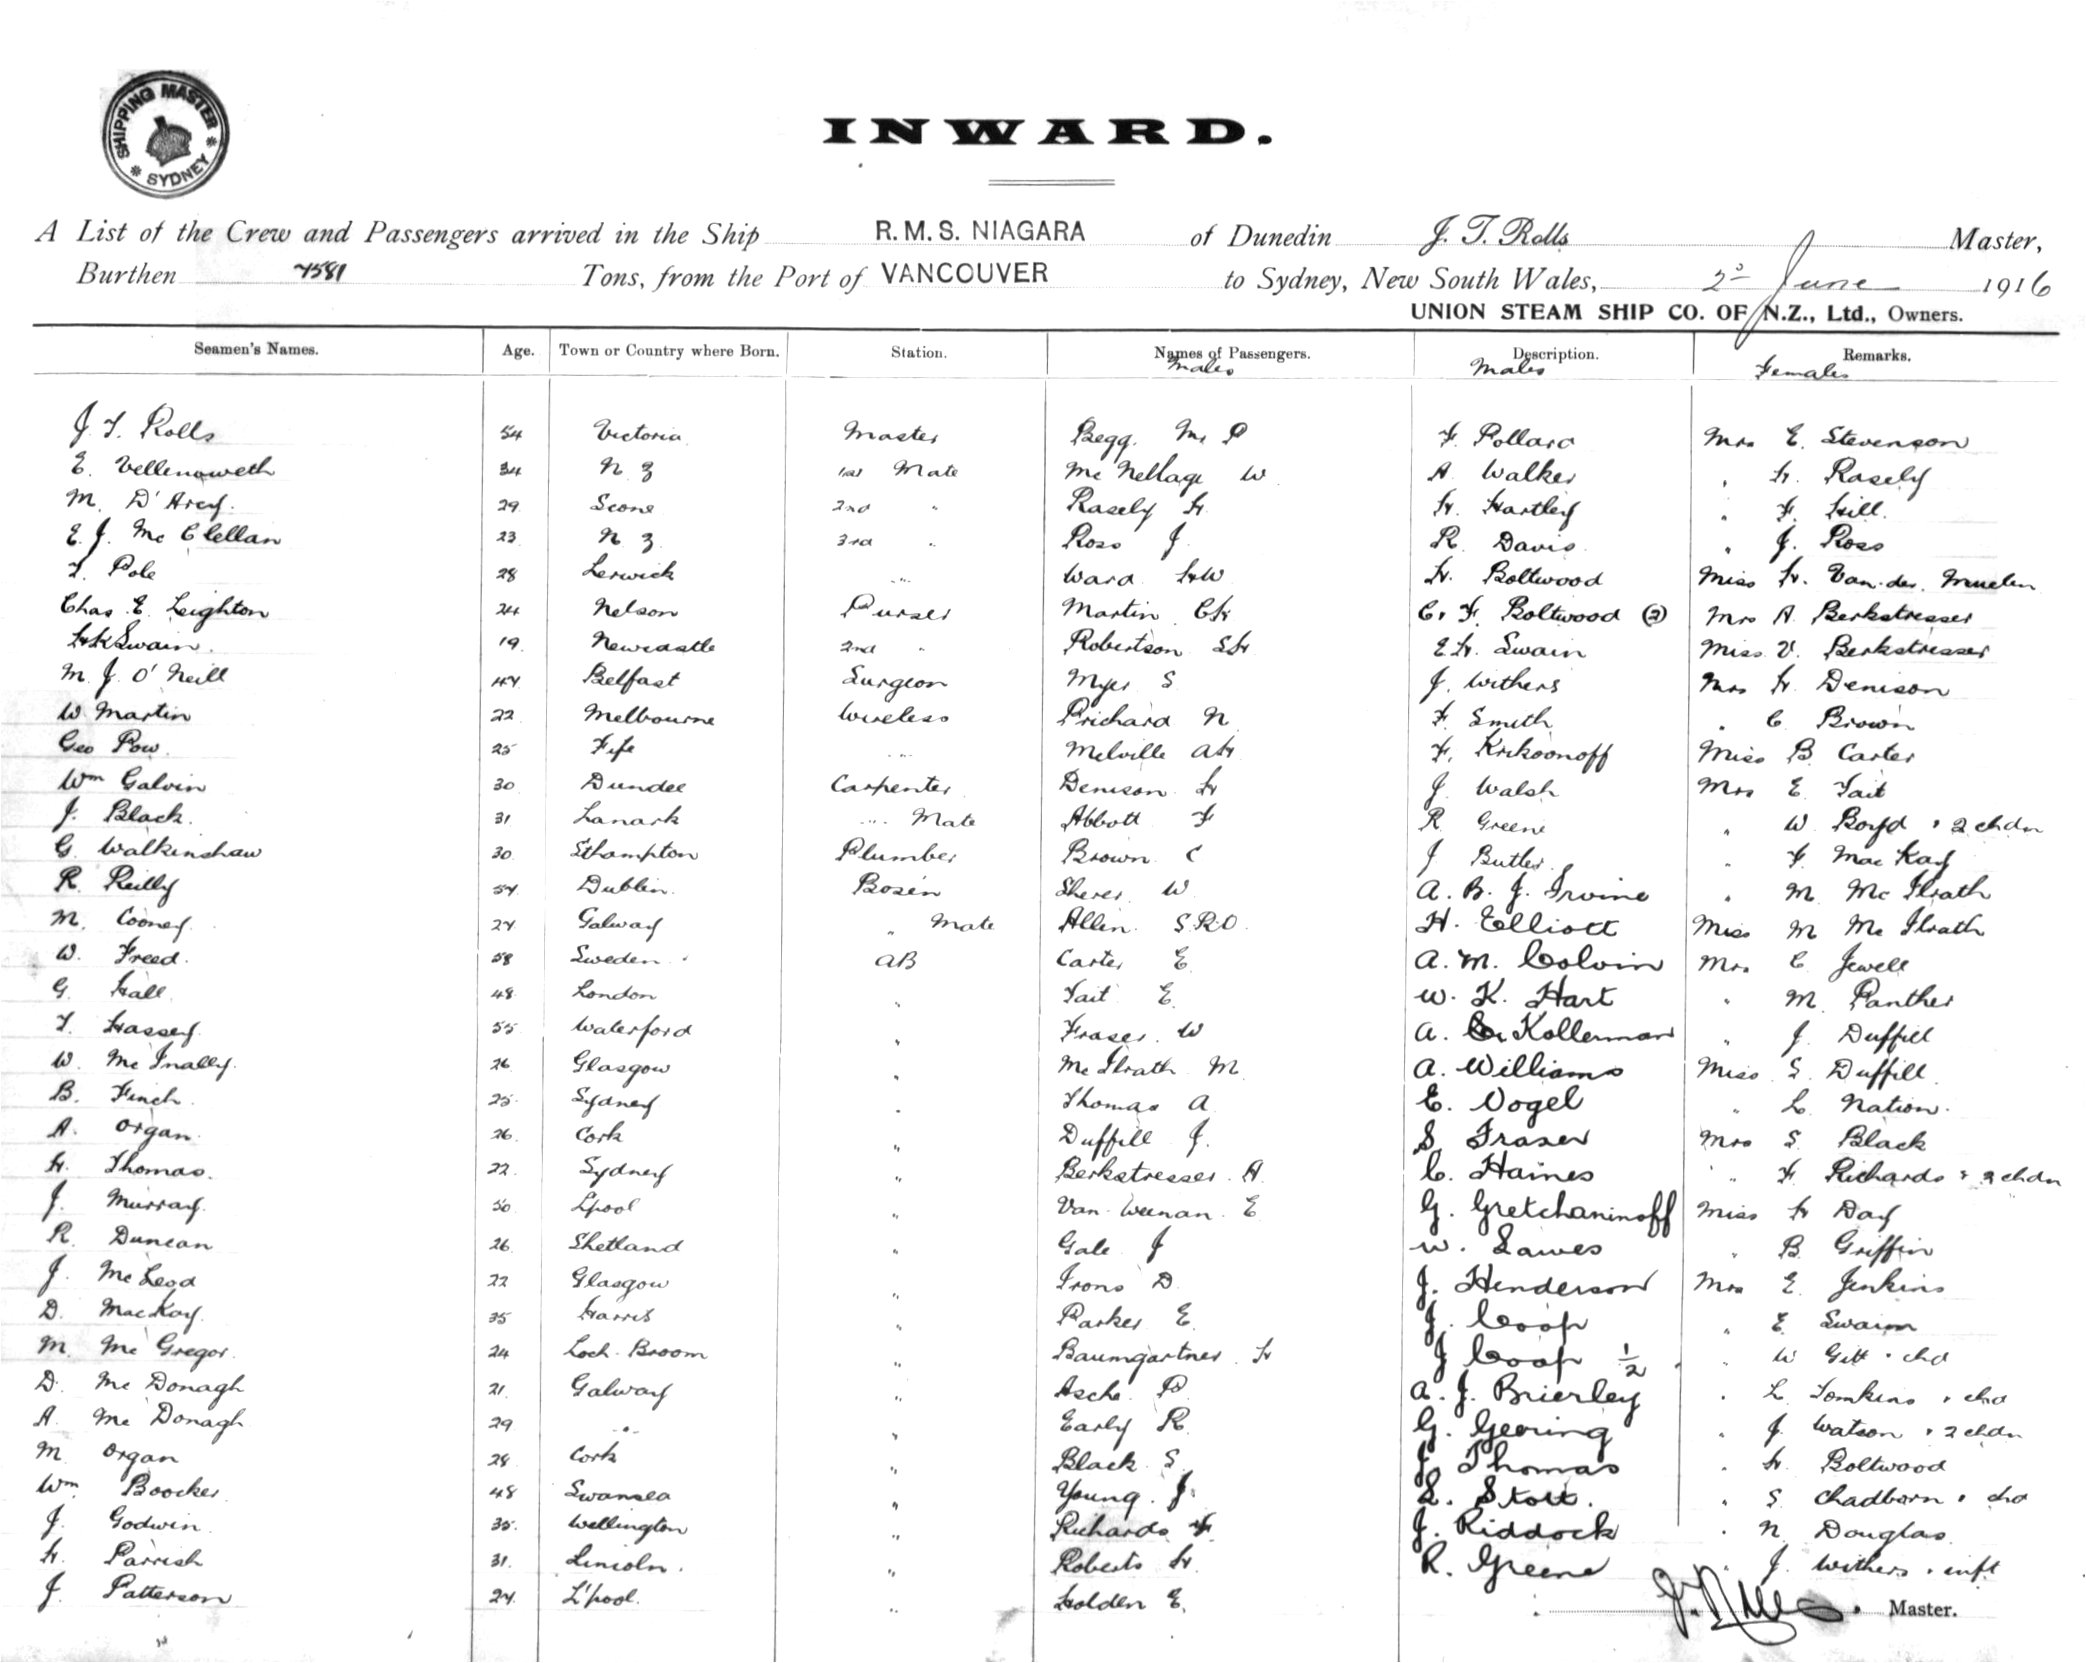 SHIPPING MASTER
SYDNEY
INWARD.
A List of the Crew and Passengers arrived in the Ship R.M.S. NIAGARA of Dunedin J. T. Rolls Master,
Burthen 7581 Tons, from the Port of VANCOUVER to Sydney, New South Wales, 2nd June 1916
UNION STEAM SHIP CO. OF N.Z., Ltd., Owners.
Seamen's Names. Age. Town or Country where Born. Station. Names of Passengers. Description. Remarks.
Males Males Females
J. T. Rolls 54 Victoria Master Begg. Mr P F. Pollard Mrs E. Stevenson
E. Vellenoweth 34 N Z 1st Mate Mc Nellage W A Walker " H. Rasely
M. D'Arcy. 29 Scone 2nd " Rasely H. H. Hartley " F. Hill.
E. J. Mc Clellan 23 N Z 3rd " Ross J R. Davis " J. Ross
T. Pole 28 Lerwick " Ward HW H. Boltwood Miss H. Van.der. Meulen
Chas. E. Leighton 24 Nelson Purser Martin CH C. F. Boltwood (2) Mrs A. Berkstresser
HKSwain. 19. Newcastle 2nd " Robertson SH E.H. Swain Miss V. Berkstresser
M. J. O'Neill 47 Belfast Surgeon Myer S J. Withers Mrs H. Denison
W. Martin 22 Melbourne Wireless Prichard N F. Smith " C Brown
Geo Pow. 25 Fife " Melville AH F. Krikoonoff Miss B. Carter
Wm Galvin 30 Dundee Carpenter Denison H J. Walsh Mrs E. Tait
J. Black. 31 Lanark " Mate Abbott F R Greene " W. Boyd + 2 chdn
G. Walkinshaw 30 Sthampton Plumber Brown C J Butler. " F. Mac Kay
R. Reilly 57 Dublin. Bosen Sherer W A. B. J. Irvine " M. Mc Ilrath
M. Cooney. 27 Galway " Mate Allen S.R.O. H. Elliott Miss M Mc Ilrath
W. Freed. 58 Sweden. AB Carter E. A. M. Colvin Mrs C Jewell
G. Hall 48 London " Tait E. W. K. Hart " M. Panther
T. Hassey. 55 Waterford " Fraser. W A. C. Kollerman " J. Duffill
W. Mc Inally. 26 Glasgow " Mc Ilrath M. A. Williams Miss S. Duffill
B. Finch. 25 Sydney " Thomas A E. Vogel " L. Nation.
A. Organ. 26. Cork " Duffill J. S. Fraser Mrs S. Black
H. Thomas. 22. Sydney " Berkstresser. A. C. Haines " F. Richards + 2 chdn
J. Murray. 50 Lpool " Van. Weenan. E G. Gretchaninoff Miss H Day
R. Duncan 26 Shetland " Gale J W. Lawes " B. Griffin
J. Mc Leod 22 Glasgow " Irons D. J. Henderson Mrs E. Jenkins
D. MacKay. 35 Harris " Parker E. J. Coop " E. Swain
M. Mc Gregor. 24 Loch. Broom " Baumgartner. H J Coop 1/2 " W Gitt + chd
D. Mc Donagh 21. Galway " Asche. P. A. J. Brierley " L. Tomkins + chd
A. Mc Donagh 29 " " Early R. G. Geering " J. Watson + 2 chdn
M. Organ 28 Cork " Black S. J. Thomas " H. Boltwood
Wm. Boocker 48 Swansea " Young. J. L. Stott. " S. Chadborn + chd
J. Godwin. 35. Wellington " Richards. F. J. Riddock " N. Douglas.
H. Parrish 31. Lincoln. " Roberts H. R. Greene " J. Withers + inft
J. Patterson 27. L'pool. " Holden E.
Master.